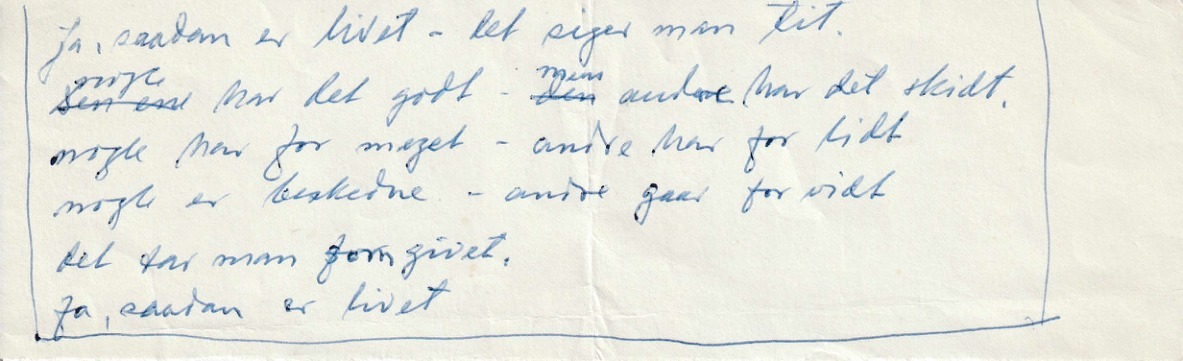 Ja, saadan er livet - det siger man tit.
nogle men
Den ene har det godt - den andre har det skidt.
nogle har for meget - andre har for lidt
nogle er beskedne - andre gaar for vidt
det tar man som givet.
Ja, saadan er livet